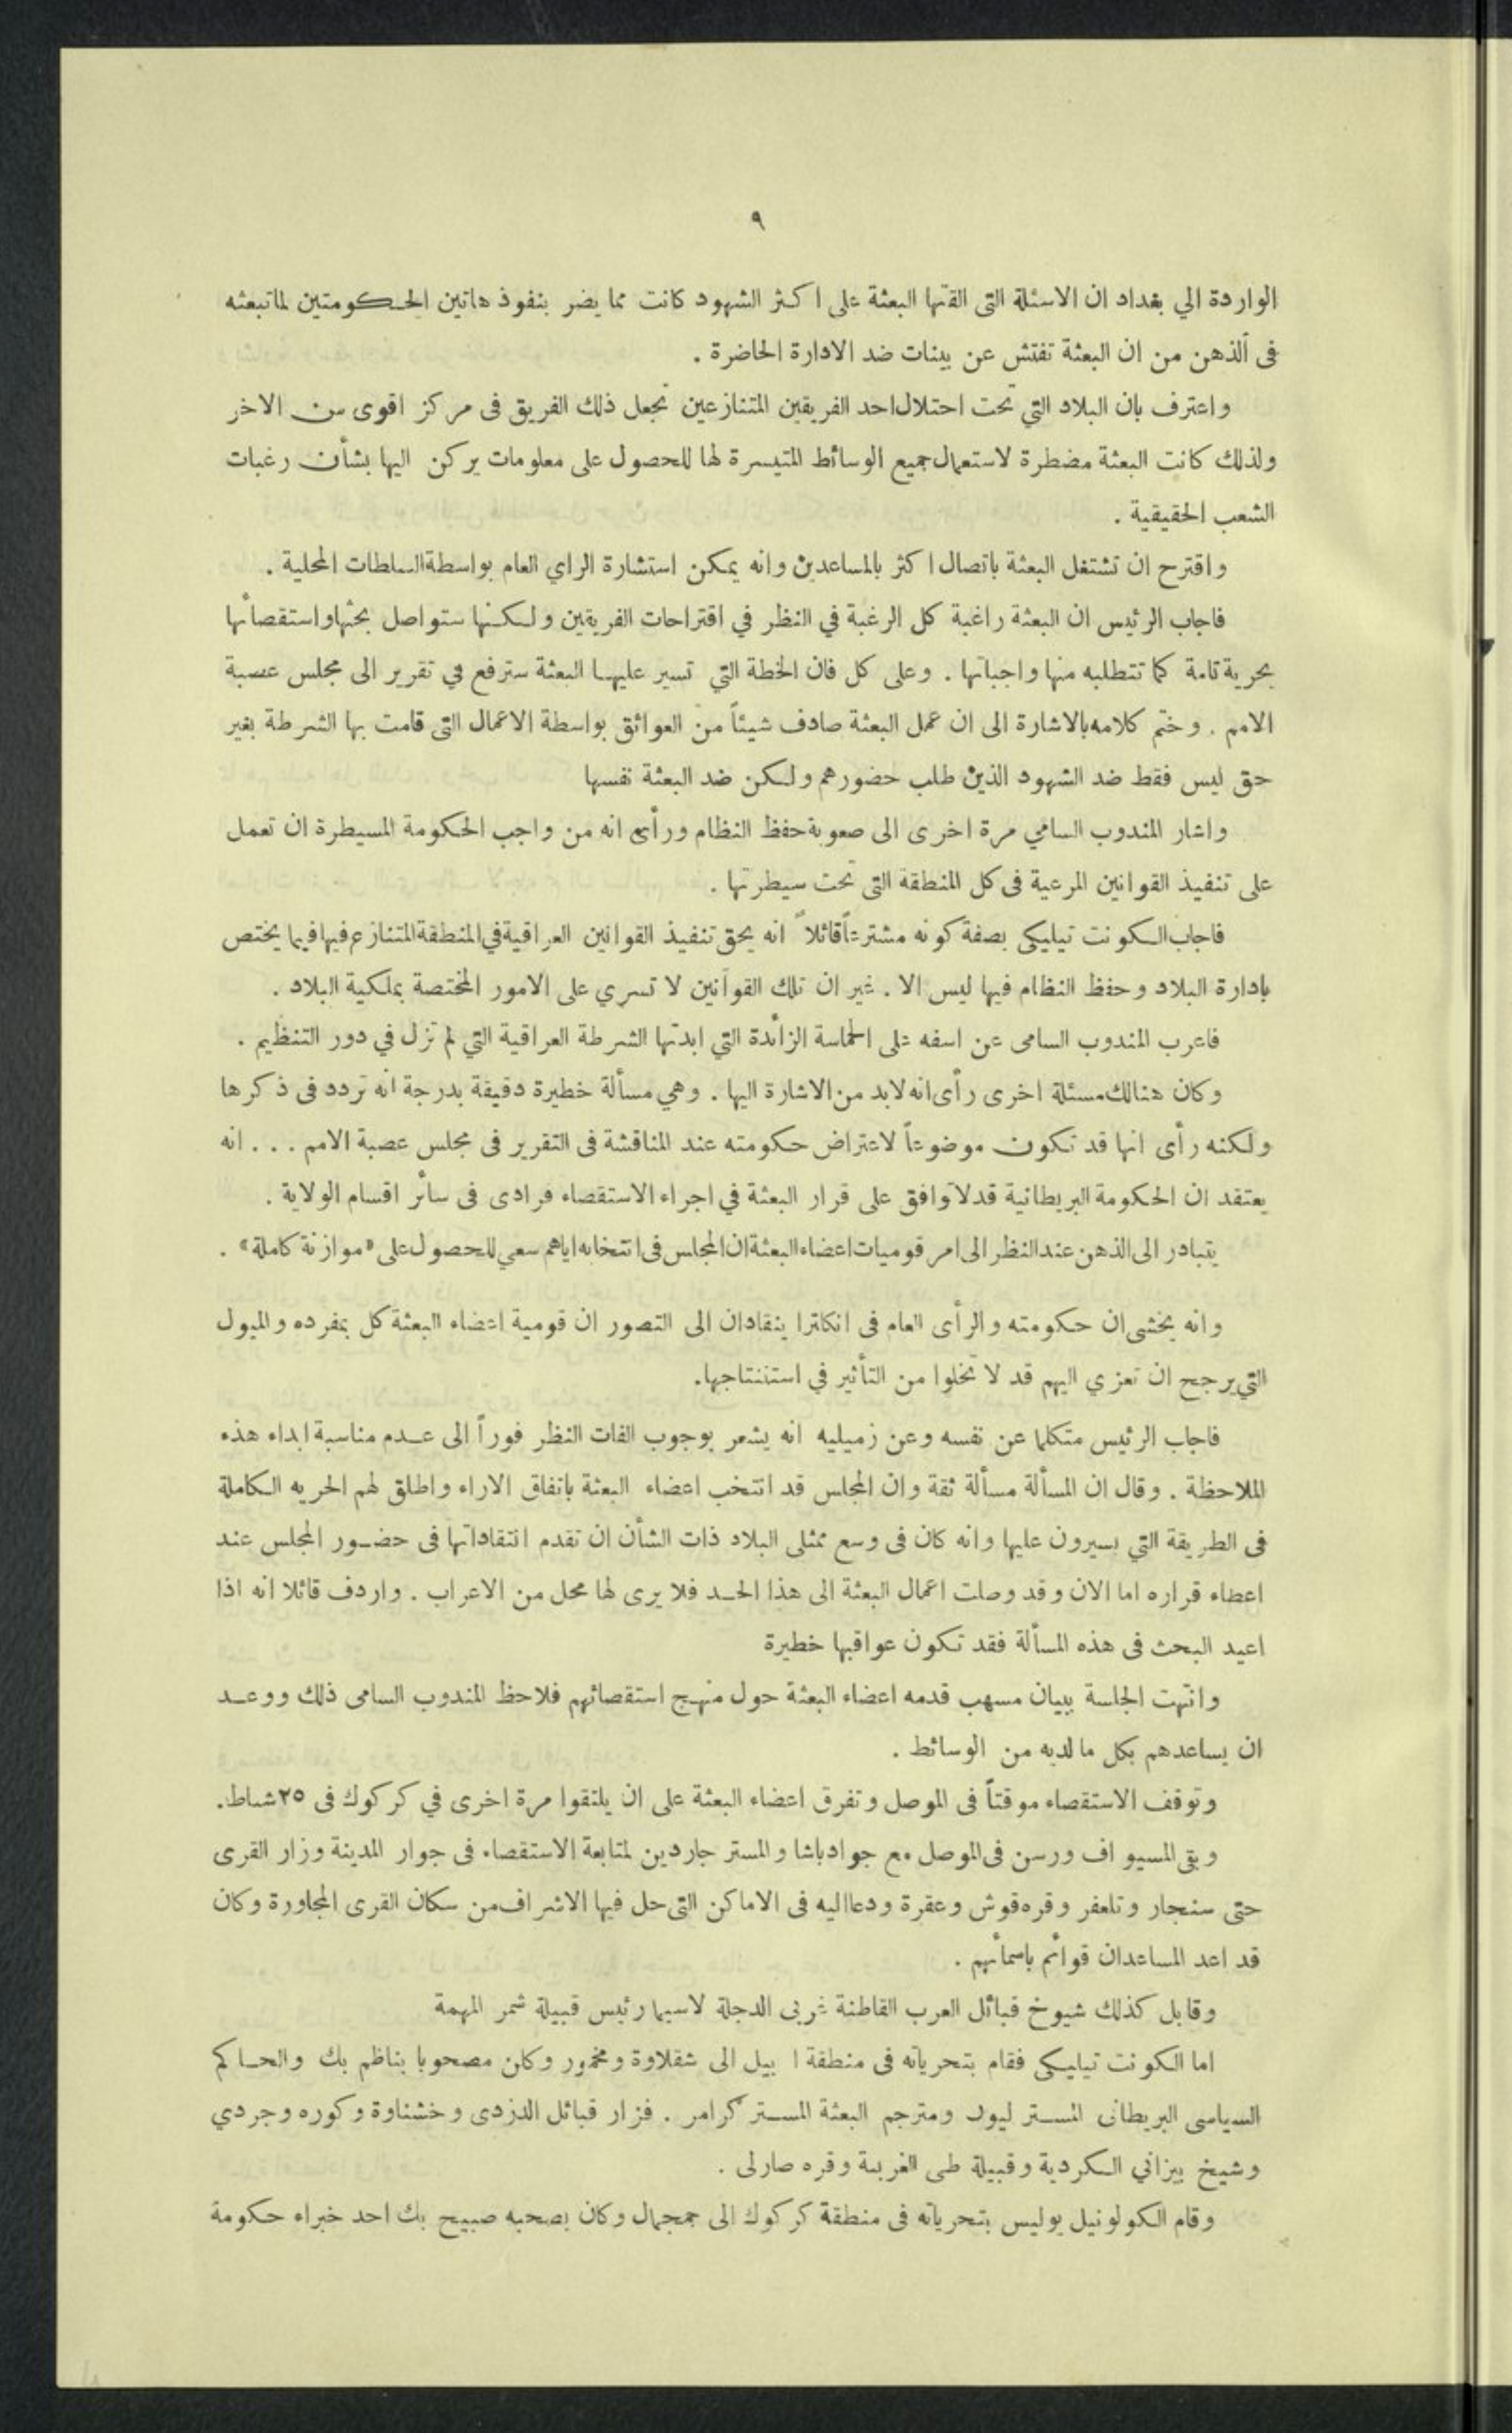 ٩
الواردة الي بغداد ان الاسئلة التى القتها البعثة على اكثر الشهود كانت مما يضر بنفوذ هاتين الحكومتين لماتبعثه
فى ألذهن من ان البعثة تفتش عن بينات ضد الادارة الحاضرة .
واعترف بان البلاد التي تحت احتلال احد الفريقين المتنازعين تجعل ذلك الفريق فى مركز اقوى من الاخر
ولذلك كانت البعثة مضطرة لاستعمال جميع الوسائط المتيسرة لها للحصول على معلومات يركن اليها بشأن رغبات
الشعب الحقيقية .
واقترح ان تشتغل البعثة باتصال اكثر بالمساعدين وانه يمكن استشارة الراي العام بواسطة السلطات المحلية .
فاجاب الرئيس ان البعثة راغبة كل الرغبة في النظر في اقتراحات الفريقين ولكنها ستواصل بحثها واستقصائها
بحرية تامة كما تتطلبه منها واجباتها . وعلى كل فان الخطة التي تسير عليها البعثة سترفع في تقرير الى مجلس عصبة
الامم . وختم كلامه بالاشارة الى ان عمل البعثة صادف شيئاً من العوائق بواسطة الاعمال التى قامت بها الشرطة بغير
حق ليس فقط ضد الشهود الذين طلب حضورهم ولكن ضد البعثة نفسها
واشار المندوب السامي مرة اخرى الى صعوبة حفظ النظام ورأى انه من واجب الحكومة المسيطرة ان تعمل
على تنفيذ القوانين المرعية فى كل المنطقة التى تحت سيطرتها .
فاجاب الكونت تيليكى بصفة كونه مشترعاً قائلاً انه يحق تنفيذ القوانين العراقية في المنطقة المتنازع فيها فيما يختص
بادارة البلاد وحفظ النظام فيها ليس الا . غير ان تلك القوانين لا تسري على الامور المختصة بملكية البلاد .
فاعرب المندوب السامى عن اسفه على الحماسة الزائدة التي ابدتها الشرطة العراقية التي لم تزل في دور التنظيم .
وكان هنالك مسئلة اخرى رأى انه لابد من الاشارة اليها . وهي مسألة خطيرة دقيقة بدرجة انه تردد فى ذكرها
ولكنه رأى انها قد تكون موضوعاً لاعتراض حكومته عند المناقشة فى التقرير فى مجلس عصبة الامم . . . انه
يعتقد ان الحكومة البريطانية قد لا توافق على قرار البعثة في اجراء الاستقصاء فرادى فى سائر اقسام الولاية .
يتبادر الى الذهن عند النظر الى امر قوميات اعضاء البعثة ان المجلس فى انتخابه اياهم سعي للحصول على «موازنة كاملة» .
وانه يخشى ان حكومته والرأى العام فى انكلترا ينقادان الى التصور ان قومية اعضاء البعثة كل بمفرده والميول
التي يرجح ان تعزي اليهم قد لا تخلوا من التأثير في استنتاجها.
فاجاب الرئيس متكلما عن نفسه وعن زميليه انه يشعر بوجوب الفات النظر فوراً الى عدم مناسبة ابداء هذه
الملاحظة . وقال ان المسألة مسألة ثقة وان المجلس قد انتخب اعضاء البعثة باتفاق الاراء واطلق لهم الحريه الكاملة
فى الطريقة التي يسيرون عليها وانه كان فى وسع ممثلى البلاد ذات الشأن ان تقدم انتقاداتها فى حضور المجلس عند
اعطاء قراره اما الان وقد وصلت اعمال البعثة الى هذا الحد فلا يرى لها محل من الاعراب . واردف قائلا انه اذا
اعيد البحث فى هذه المسألة فقد تكون عواقبها خطيرة
وانتهت الجلسة ببيان مسهب قدمه اعضاء البعثة حول منهج استقصائهم فلاحظ المندوب السامى ذلك ووعد
ان يساعدهم بكل مالديه من الوسائط .
وتوقف الاستقصاء موقتاً فى الموصل وتفرق اعضاء البعثة على ان يلتقوا مرة اخرى في كركوك فى ٢٥ شباط.
وبقى المسيو اف ورسن فى الموصل مع جواد باشا والمستر جاردين لمتابعة الاستقصاء فى جوار المدينة وزار القرى
حتى سنجار وتلعفر وقره قوش وعقرة ودعا اليه فى الاماكن التى حل فيها الاشراف من سكان القرى المجاورة وكان
قد اعد المساعدان قوائم باسمائهم .
وقابل كذلك شيوخ قبائل العرب القاطنة غربى الدجلة لاسيما رئيس قبيلة شمر المهمة
اما الكونت تيليكى فقام بتحرياته فى منطقة ا بيل الى شقلاوة ومخمور وكان مصحوبا بناظم بك والحاكم
السياسى البريطانى المستر ليون ومترجم البعثة المستر كرامر . فزار قبائل الدزدى وخشناوة وكوره وجردي
وشيخ بيزاني الكردية وقبيلة طى العربية وقره صارلى .
وقام الكولونيل بوليس بتحرياته فى منطقة كركوك الى جمجمال وكان يصحبه صبيح بك احد خبراء حكومة